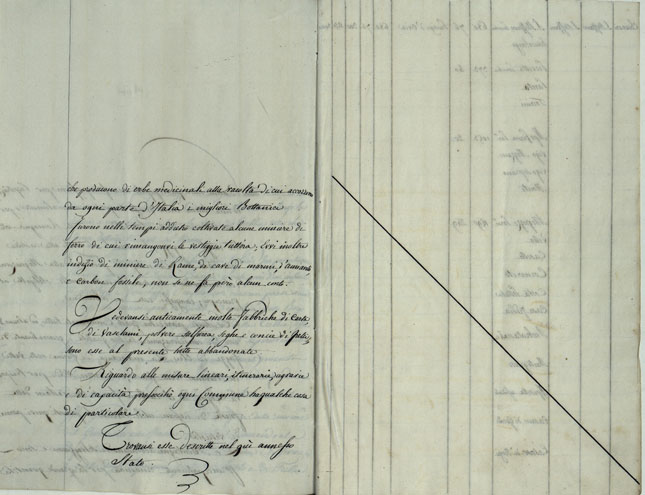 che producono di erbe medicinali alla raccolta di cui accorrono
da ogni parte d'Italia i migliori Bottanici
furono nelle tempi addietro coltivate alcune miniere di
ferro di cui rimangono le vestiggia tuttora, Evvi inoltre
indizio di miniere di Rame, di cave di marmi, d'Amianto
e carbon fossile, non se ne fa però alcun conto.
Vedevansi anticamente molte Fabbriche di Carta,
di Vasellami, polvere sulfurea, Seghe e concie di Pelli,
sono esse al presente tutte abbandonate
Riguardo alle misure lineari, itinerarie, agrarie
e di capacità pressochè ogni Comune ha qualche cosa
di particolare
Trovansi esse descritte nel quì annesso
Stato.